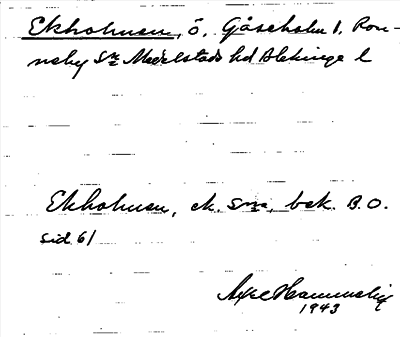 Ekholmen, ö, Gåseholm 1, Ron-
neby Sn Medelstads hd Blekinge l
Ekholmen, ek. sms, bek. B.O.
sid 61
Axel
1943